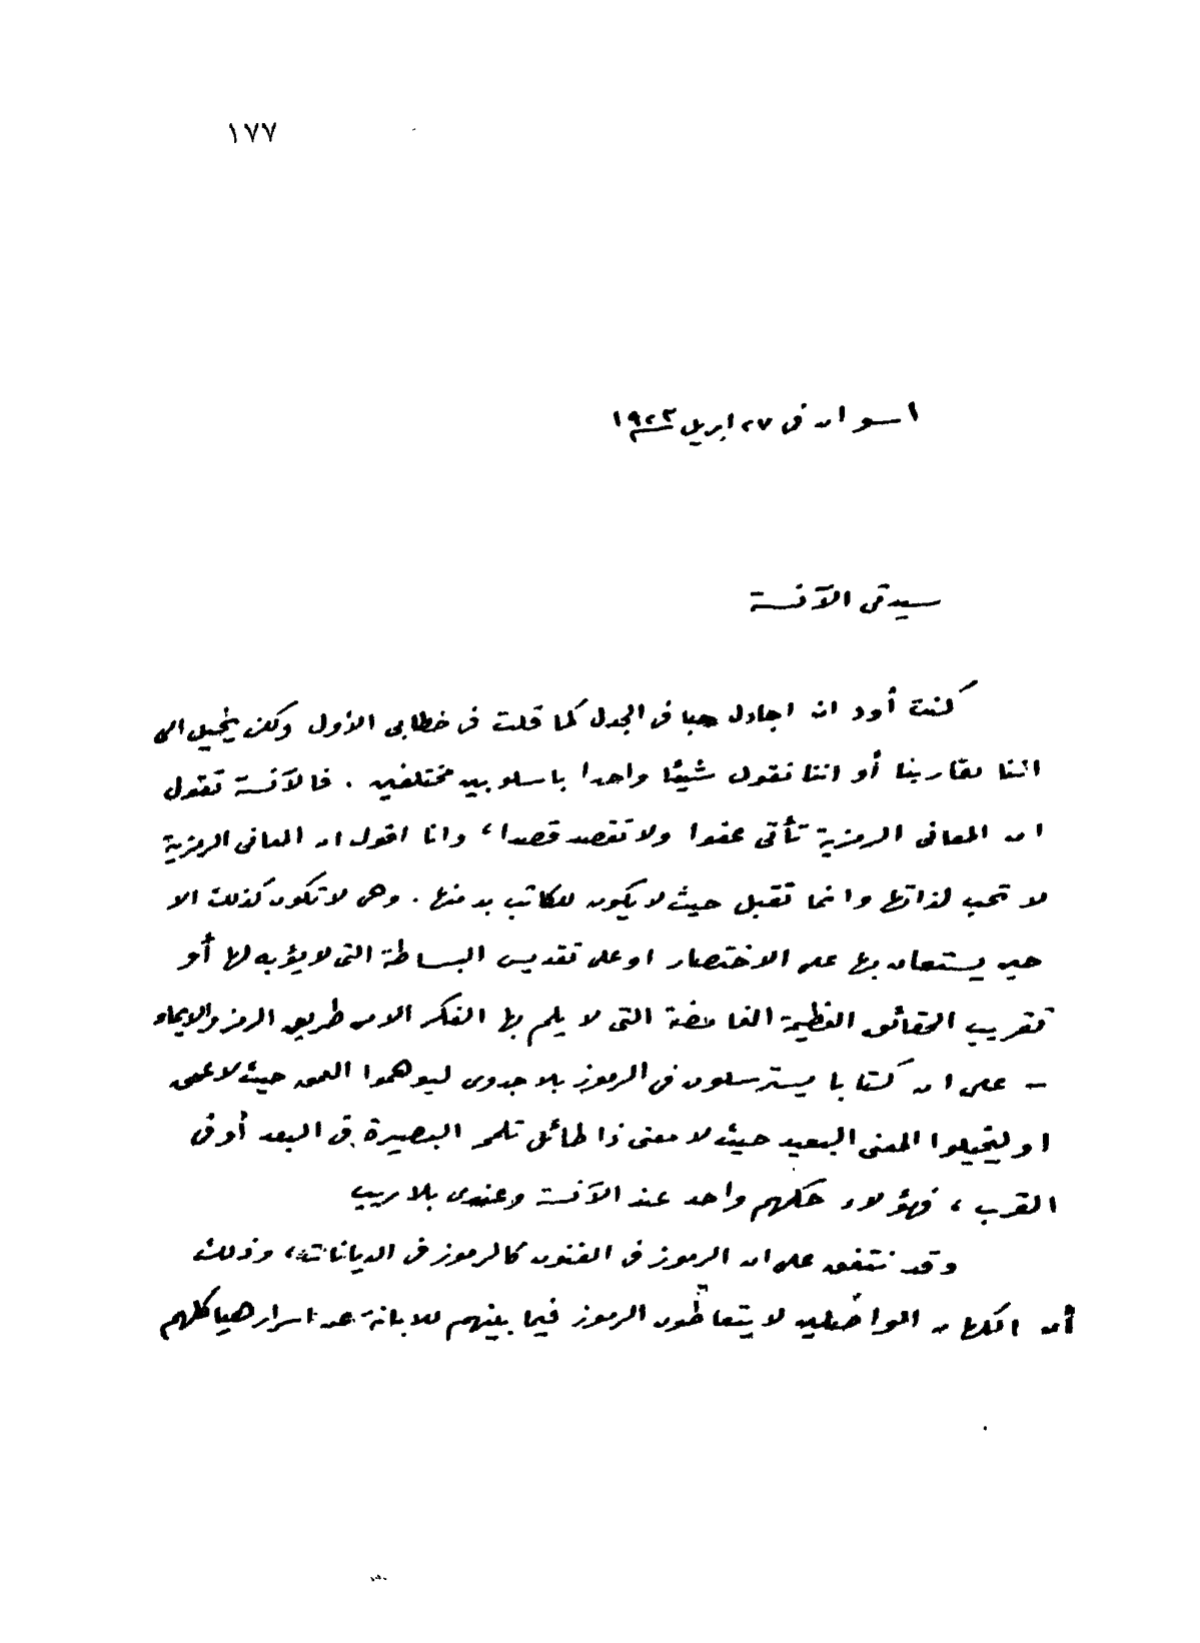 ١٧٧
اسوان فى ٢٧ ابريل ١٩٢٣
سيدتى الآنسة
كنت أود ان اجادل حبا فى الجدل كما قلت فى خطابى الأول ولكن يخيل الى
اننا تقاربنا أو اننا نقول شيئا واحدا باسلوبين مختلفين . فالآنسة تقول
ان المعانى الرمزية تأتى عفوا ولا تقصد قصدا ، وانا اقول ان المعانى الرمزية
لا تحب لذاتها وانما تقبل حيث لا يكون للكاتب بد منها . وهى لا تكون كذلك الا
حين يستعان بها على الاختصار او على تقديس البساطة التى لا يؤبه لها أو
تقريب الحقائق العظيمة الغامضة التى لا يلم بها الفكر الا من طريق الرمز والايماء
– على ان كتابا يسترسلون فى الرموز بلا جدوى ليوهموا العمق حيث لا عمق
او ليتخيلوا المعنى البعيد حيث لا معنى ذا طائل تلمحه البصيرة فى البعد أو فى
القرب ، فهؤلاء حكمهم واحد عند الآنسة وعندى بلا ريب
وقد نتفق على ان الرموز فى الفنون كالرموز فى الديانات ، وذلك
أن الكهان الواصلين لا يتعاطون الرموز فيما بينهم للابانة عن اسرار هياكلهم